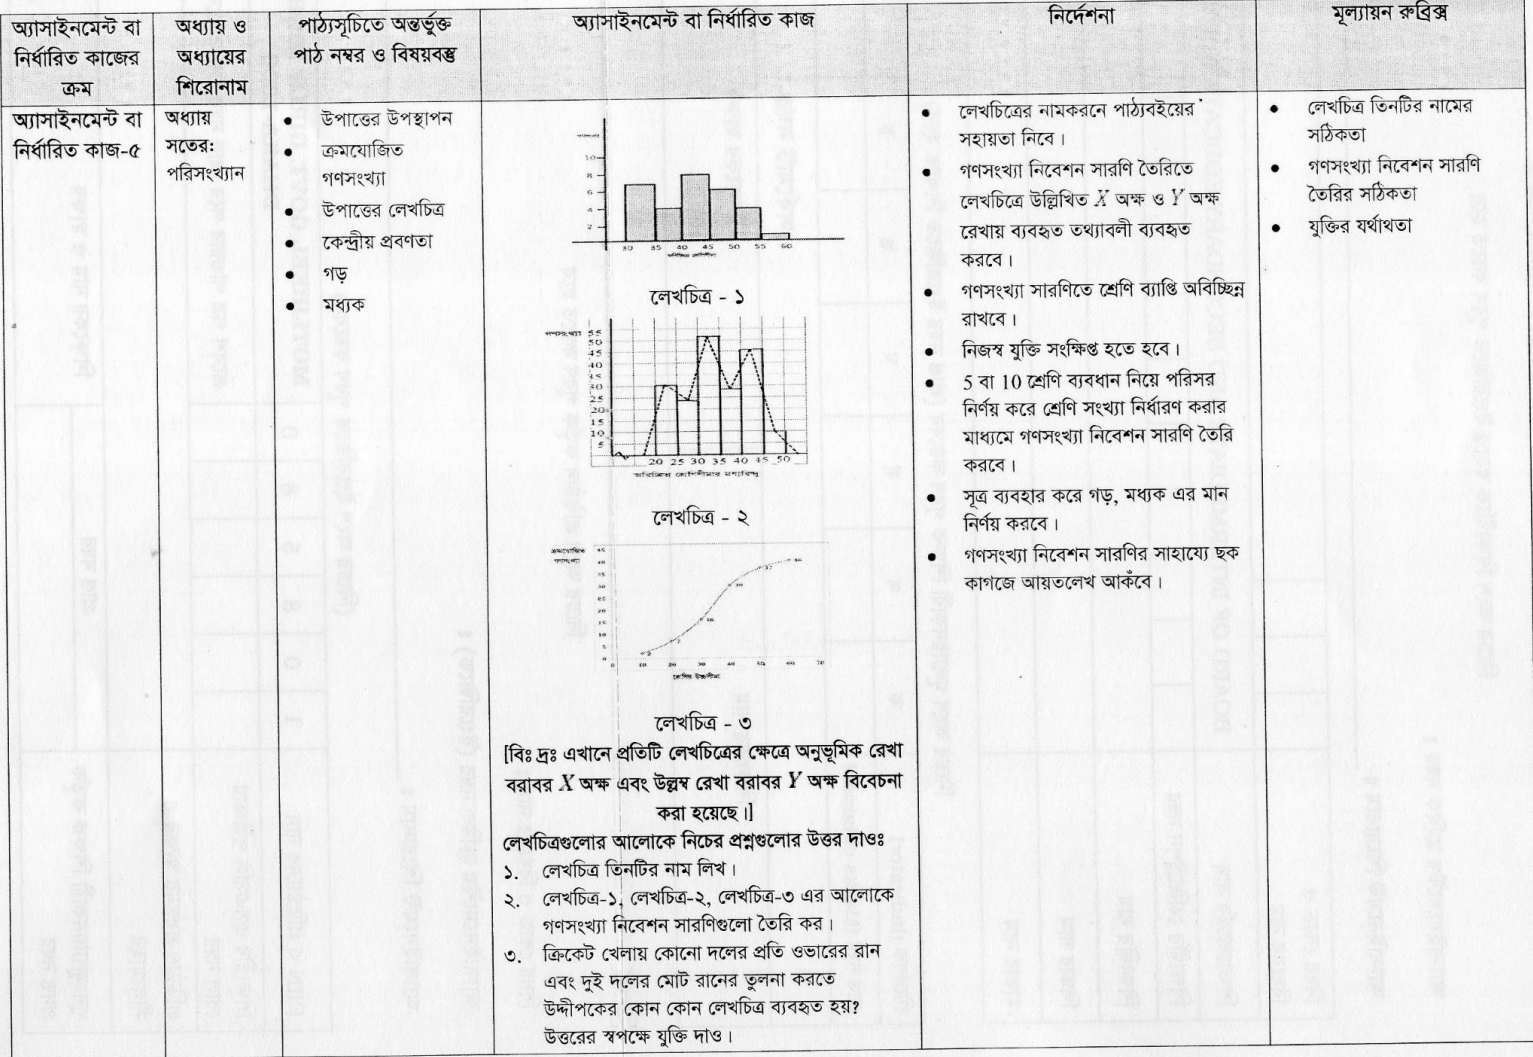 অ্যাসাইনমেন্ট বা
নির্ধারিত কাজের
ক্রম
অধ্যায় ও
অধ্যায়ের
শিরোনাম
পাঠ্যসূচিতে অন্তর্ভুক্ত
পাঠ নম্বর ও বিষয়বস্তু
অ্যাসাইনমেন্ট বা নির্ধারিত কাজ
নির্দেশনা
মূল্যায়ন রুব্রিক্স
অ্যাসাইনমেন্ট বা
নির্ধারিত কাজ-৫
অধ্যায়
সতের:
পরিসংখ্যান
• উপাত্তের উপস্থাপন
• ক্রমযোজিত
গণসংখ্যা
• উপাত্তের লেখচিত্র
• কেন্দ্রীয় প্রবণতা
• গড়
• মধ্যক
10
8
6
4
2
30 35 40 45 50 55 60
লেখচিত্র - ১
গণসংখ্যা
55
50
45
40
35
30
25
20
15
10
5
20 25 30 35 40 45 50
অবিচ্ছিন্ন শ্রেণিসীমার মধ্যবিন্দু
লেখচিত্র - ২
ক্রমযোজিত
গণসংখ্যা
45
40
35
30
25
20
15
10
5
0
0 10 20 30 40 50 60 70
শ্রেণির উচ্চসীমা
লেখচিত্র - ৩
[বিঃ দ্রঃ এখানে প্রতিটি লেখচিত্রের ক্ষেত্রে অনুভূমিক রেখা
বরাবর X অক্ষ এবং উল্লম্ব রেখা বরাবর Y অক্ষ বিবেচনা
করা হয়েছে।]
লেখচিত্রগুলোর আলোকে নিচের প্রশ্নগুলোর উত্তর দাওঃ
১. লেখচিত্র তিনটির নাম লিখ।
২. লেখচিত্র-১, লেখচিত্র-২, লেখচিত্র-৩ এর আলোকে
গণসংখ্যা নিবেশন সারণিগুলো তৈরি কর।
৩. ক্রিকেট খেলায় কোনো দলের প্রতি ওভারের রান
এবং দুই দলের মোট রানের তুলনা করতে
উদ্দীপকের কোন কোন লেখচিত্র ব্যবহৃত হয়?
উত্তরের স্বপক্ষে যুক্তি দাও।
• লেখচিত্রের নামকরনে পাঠ্যবইয়ের
সহায়তা নিবে।
• গণসংখ্যা নিবেশন সারণি তৈরিতে
লেখচিত্রে উল্লিখিত X অক্ষ ও Y অক্ষ
রেখায় ব্যবহৃত তথ্যাবলী ব্যবহৃত
করবে।
• গণসংখ্যা সারণিতে শ্রেণি ব্যাপ্তি অবিচ্ছিন্ন
রাখবে।
• নিজস্ব যুক্তি সংক্ষিপ্ত হতে হবে।
• 5 বা 10 শ্রেণি ব্যবধান নিয়ে পরিসর
নির্ণয় করে শ্রেণি সংখ্যা নির্ধারণ করার
মাধ্যমে গণসংখ্যা নিবেশন সারণি তৈরি
করবে।
• সূত্র ব্যবহার করে গড়, মধ্যক এর মান
নির্ণয় করবে।
• গণসংখ্যা নিবেশন সারণির সাহায্যে ছক
কাগজে আয়তলেখ আকঁবে।
• লেখচিত্র তিনটির নামের
সঠিকতা
• গণসংখ্যা নিবেশন সারণি
তৈরির সঠিকতা
• যুক্তির যর্থাথতা